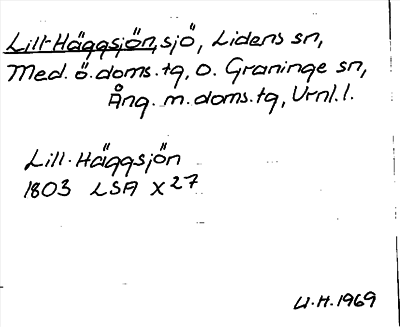 Lill-Häggsjön, sjö, Lidens sn,
Med. ö. doms. tg, o. Graninge sn,
Ång. m. doms. tg, Vrnl. l.
Lill-Häggsjön
1803 LSA X27
U.H. 1969